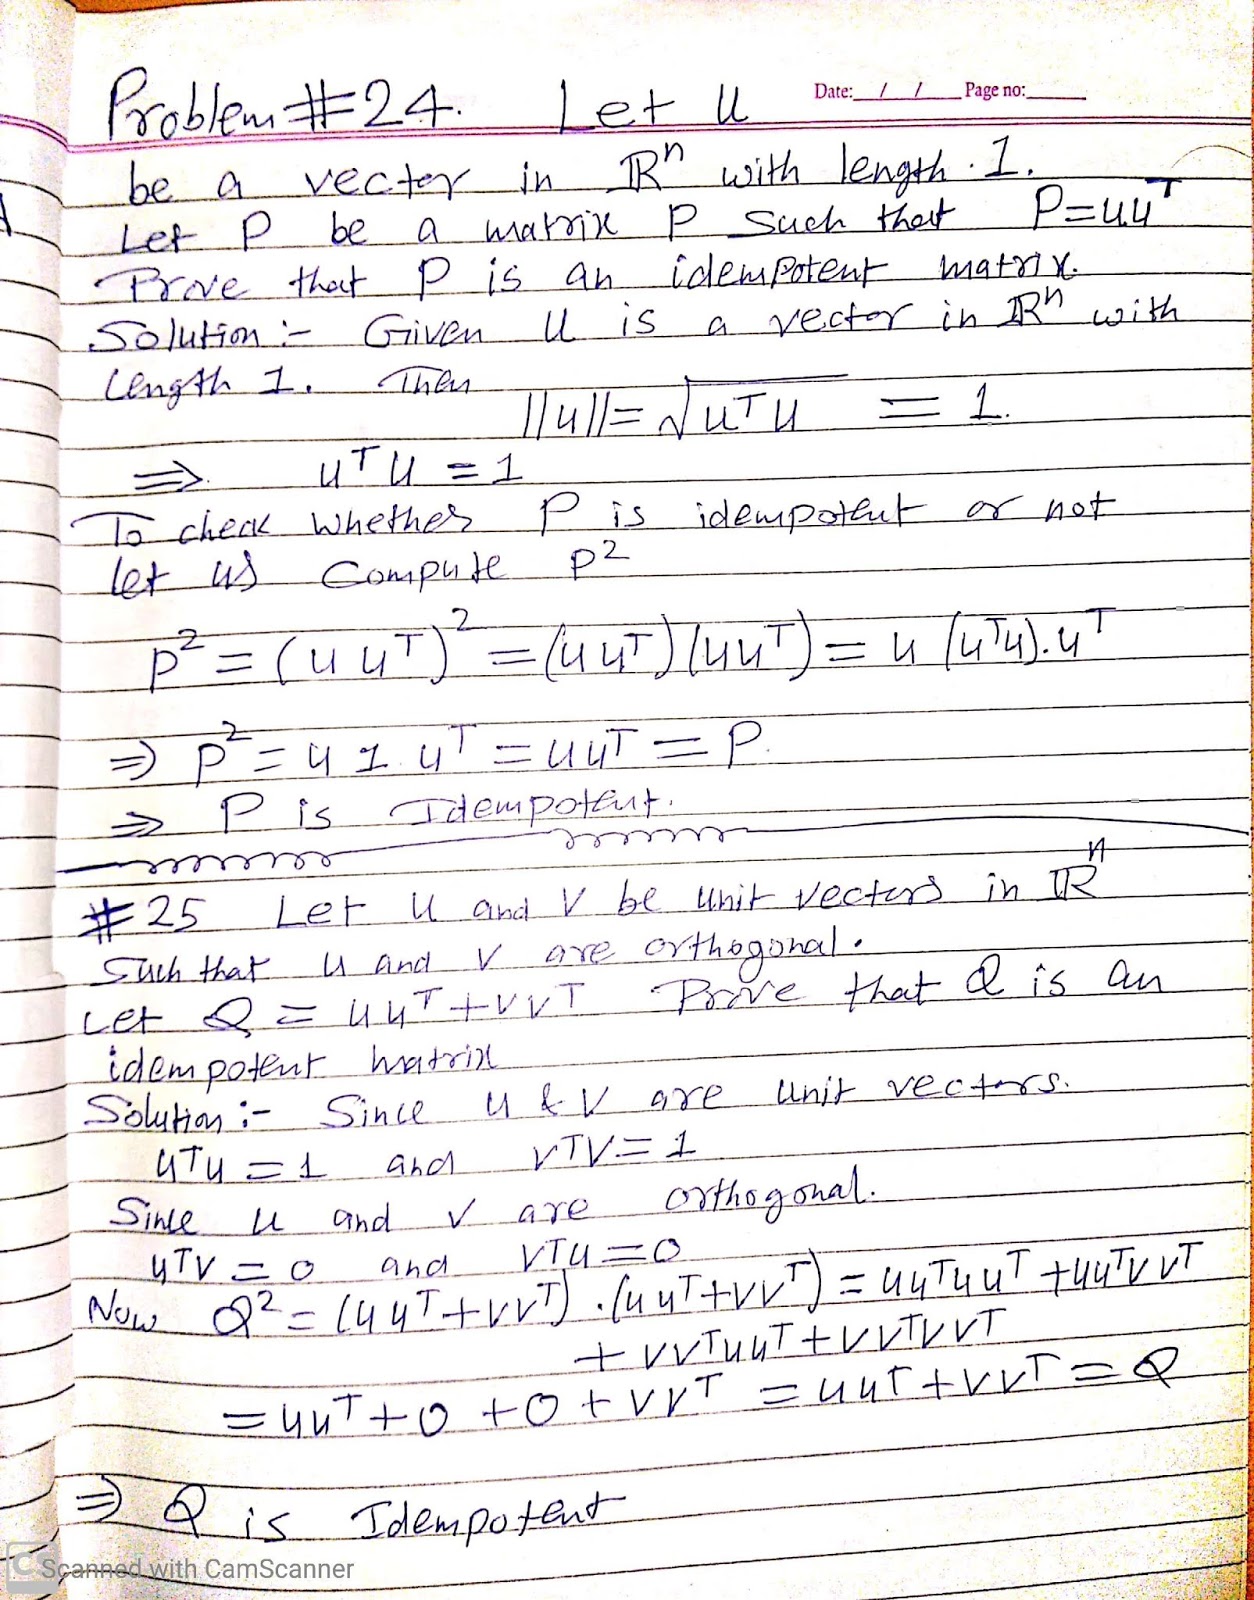 Date: / / Page no:
Problem #24. Let u
be a vector in ℝⁿ with length 1.
Let P be a matrix P such that P=uuᵀ
Prove that P is an idempotent matrix.
Solution :- Given u is a vector in ℝⁿ with
length 1. Then
||u||= √uᵀu = 1.
⇒ uᵀu = 1
To check whether P is idempotent or not
let us Compute P²
P² = (u uᵀ)² = (u uᵀ)(uuᵀ) = u (uᵀu).uᵀ
⇒ P² = u 1. uᵀ = uuᵀ = P.
⇒ P is Idempotent.
#25 Let u and v be unit vectors in ℝⁿ
Such that u and v are orthogonal.
Let Q = uuᵀ+vvᵀ Prove that Q is an
idempotent matrix
Solution :- Since u & v are unit vectors.
uᵀu = 1 and vᵀv = 1
Since u and v are orthogonal.
uᵀv = 0 and vᵀu = 0
Now Q² = (uuᵀ+vvᵀ).(uuᵀ+vvᵀ) = uuᵀuuᵀ +uuᵀvvᵀ
+ vvᵀuuᵀ + vvᵀvvᵀ
= uuᵀ + 0 + 0 + vvᵀ = uuᵀ + vvᵀ = Q
⇒ Q is Idempotent
CS Scanned with CamScanner